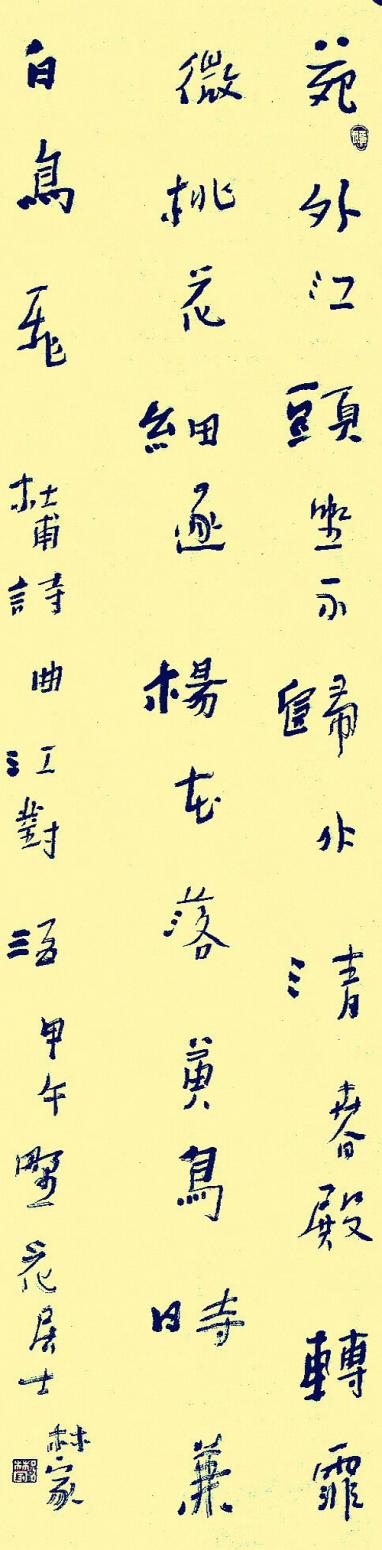 苑外江頭坐不歸水清春殿轉霏
微桃花細逐楊花落黃鳥時兼
白鳥飛 杜甫詩曲江對酒 甲午 花居士 林家